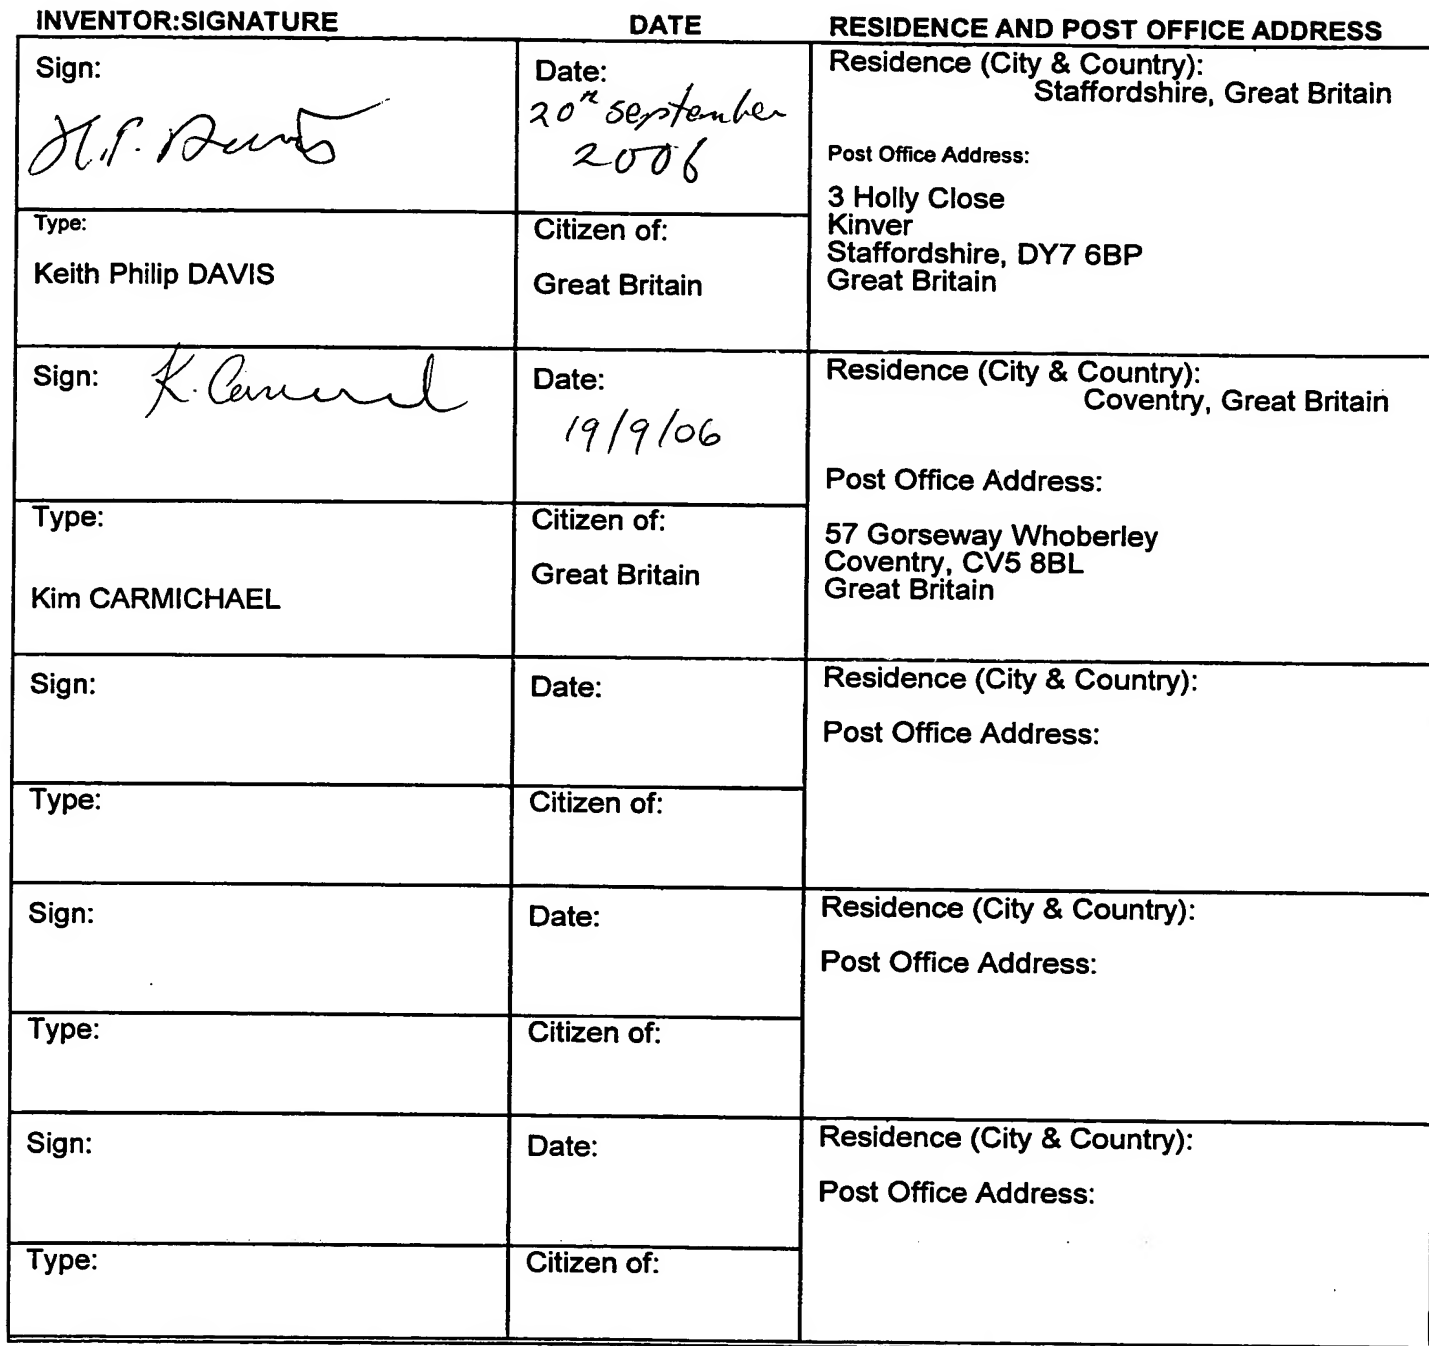 INVENTOR:SIGNATURE DATE RESIDENCE AND POST OFFICE ADDRESS
Sign:
Date:
20th September
2006
Residence (City & Country):
Staffordshire, Great Britain
Post Office Address:
3 Holly Close
Kinver
Staffordshire, DY7 6BP
Great Britain
Type:
Keith Philip DAVIS
Citizen of:
Great Britain
Sign:
Date:
19/9/06
Residence (City & Country):
Coventry, Great Britain
Post Office Address:
57 Gorseway Whoberley
Coventry, CV5 8BL
Great Britain
Type:
Kim CARMICHAEL
Citizen of:
Great Britain
Sign:
Date:
Residence (City & Country):
Post Office Address:
Type:
Citizen of:
Sign:
Date:
Residence (City & Country):
Post Office Address:
Type:
Citizen of:
Sign:
Date:
Residence (City & Country):
Post Office Address:
Type:
Citizen of: